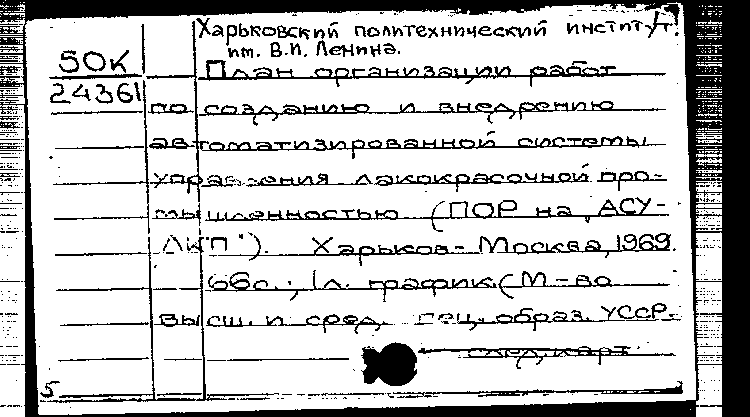 Харьковский политехнический институт
им. В.И. Ленина.
50К
План организации работ
24361
по созданию и внедрению
автоматизированной системы
управления лакокрасочной про-
мышленностью (ПОР на „АСУ-
ЛКП"). Харьков - Москва, 1969.
66с.; 1л. график. (М-во
высш. и сред. спец. образ. УССР.
след. карт.
5